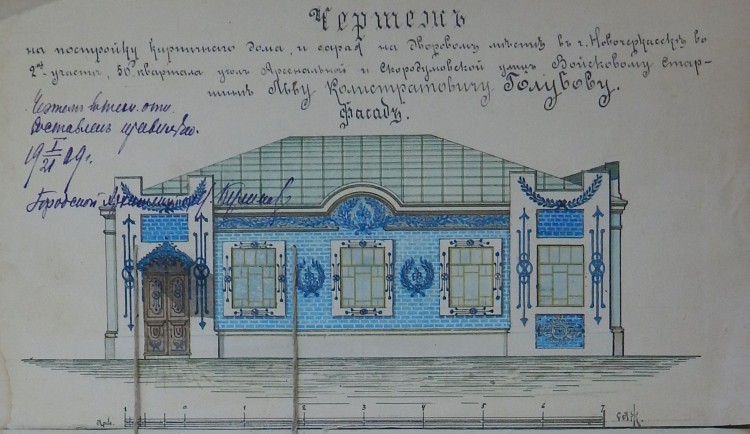 Чертежъ
на постройку кирпичнаго дома, и сарая на дворовомъ мѣстѣ въ г. Новочеркасскѣ во
2ᵐ участкѣ, 50 квартала уголъ Арсенальной и Скородумовской улицъ Войсковому Стар-
шинѣ Льву Калистратовичу Голубову.
Фасадъ.
Чертежъ въ техн. отн.
составленъ правильно.
19 I/21 09 г.
Городской Архитекторъ
1 0 1 2 3 4 5 6 7